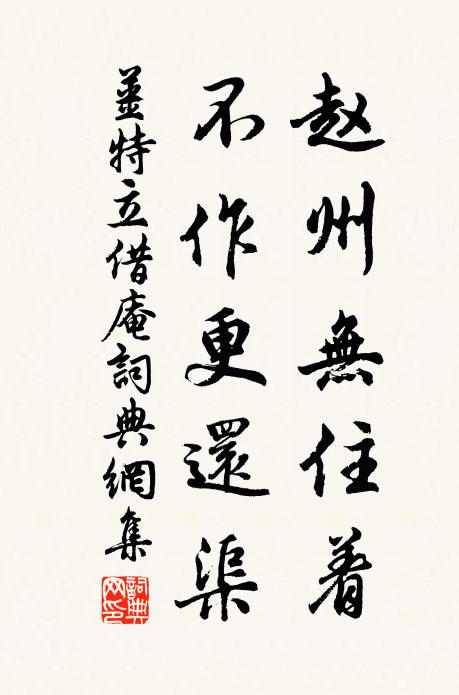 赵州無住着
不作更還渠
薑特立借庵詞典網集
詞典网印